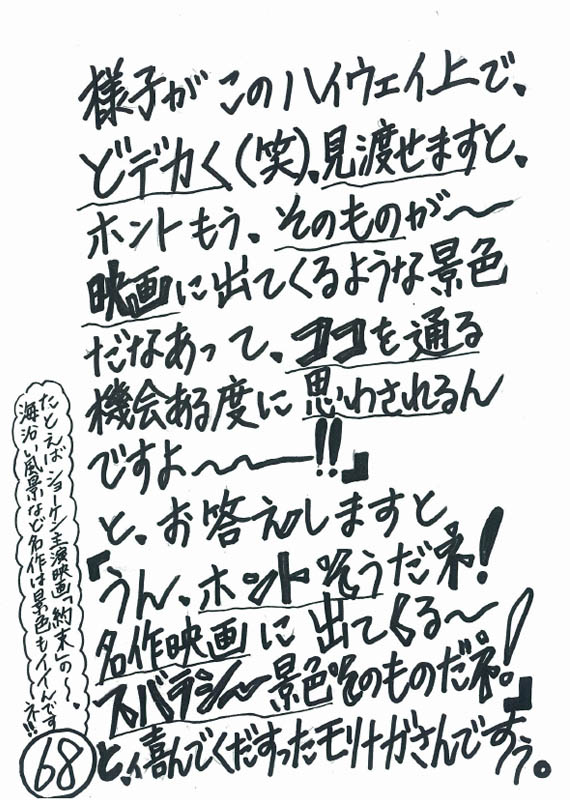 様子が このハイウェイ上で、
どデカく(笑)、見渡せますと、
ホントもう、そのものが〜
映画に出てくるような景色
だなあって、ココを通る
機会ある度に思わされるん
ですよ〜〜!!」
と、お答えしますと
「うん、ホントそうだネ!
名作映画に出てくる〜
スバラシ〜景色そのものだネ!」
と、喜んでくだすったモリナガさんですぅ。
たとえばショーケン主演映画「約束」の〜、
海沿い風景など名作は景色もイイんです
ネ!!
68